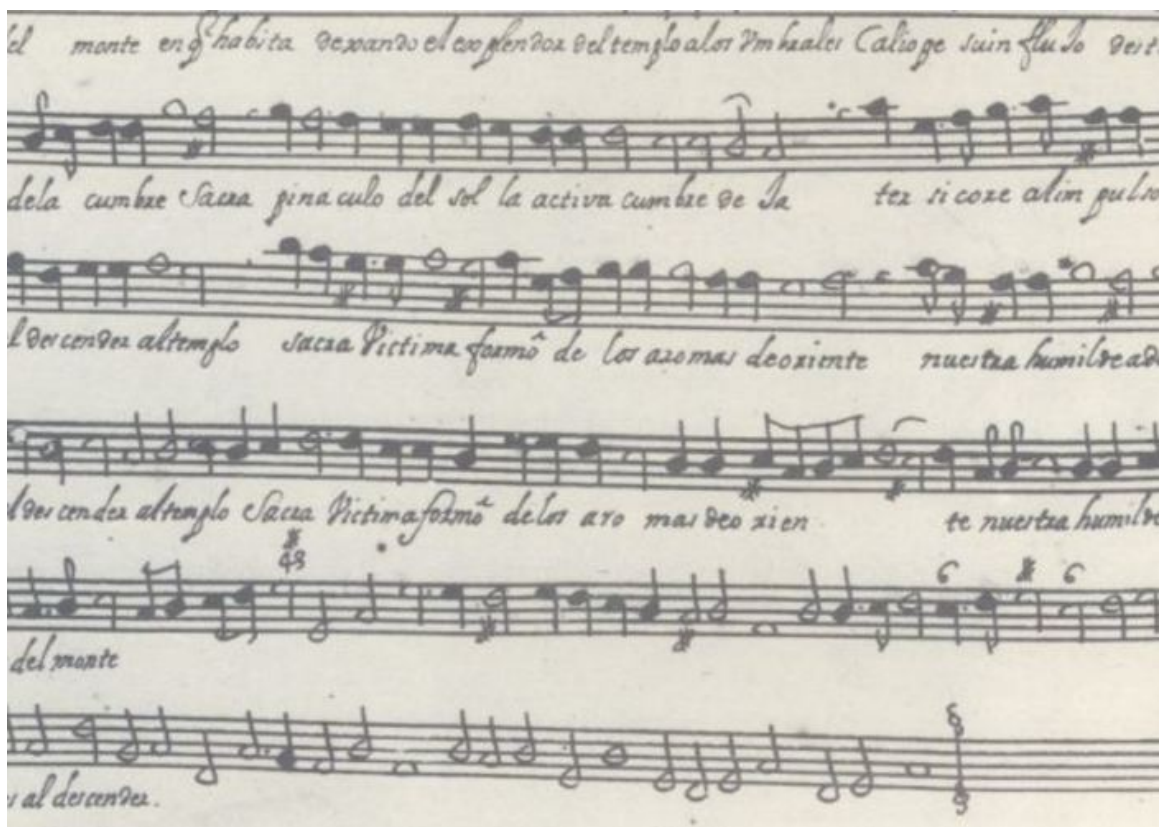 del monte en q̃ habita dexando el explendor del templo a los Vmbrales Caliope su influJo dest
dela cumbre Sacra pinaculo del sol la activa cumbre de Ja ter si core al im pulso
l descender al templo sacra Victima formo de los aromas de oriente nuestra humilde ado
l descender al templo Sacra Victima formo de los aro mas deo rien te nuestra humilde
43
6 6
del monte
al descender.